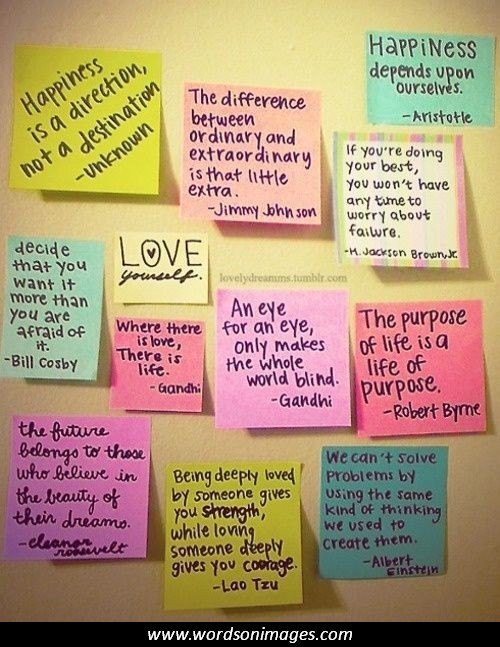 Happiness
is a direction,
not a destination
-unknown
The difference
between
ordinary and
extraordinary
is that little
extra.
-Jimmy Johnson
HAPPiNESS
depends upon
ourselves.
-Aristotle
If you're doing
your best,
you won't have
any time to
worry about
failure.
-H. Jackson Brown, Jr.
decide
that you
want it
more than
you are
afraid of
it.
-Bill Cosby
LOVE
yourself.
lovelydreamms.tumblr.com
Where there
is love,
There is
life.
-Gandhi
An eye
for an eye,
only makes
the whole
world blind.
-Gandhi
The purpose
of life is a
life of
purpose.
-Robert Byrne
the future
belongs to those
who believe in
the beauty of
their dreams.
-eleanor
roosevelt
Being deeply loved
by someone gives
you strength,
while loving
someone deeply
gives you courage.
-Lao Tzu
We can't solve
problems by
using the same
kind of thinking
we used to
create them.
-Albert
Einstein
www.wordsonimages.com